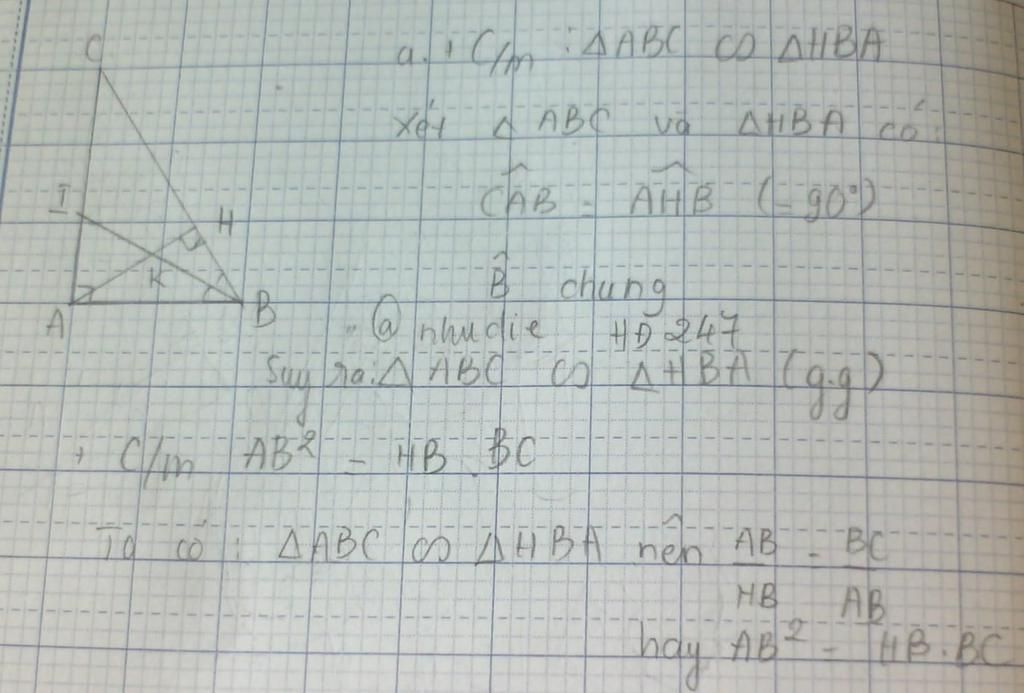 a. + C/m : Δ ABC ∽ Δ HBA
Xét Δ ABC và Δ HBA có:
CAB = AHB (= 90°)
B̂ chung
@ nhudie HĐ 247
Suy ra: Δ ABC ∽ Δ HBA (g.g)
+ C/m AB² = HB . BC
Ta có : Δ ABC ∽ Δ HBA nên AB/HB = BC/AB
hay AB² = HB . BC
C
I
H
K
A
B